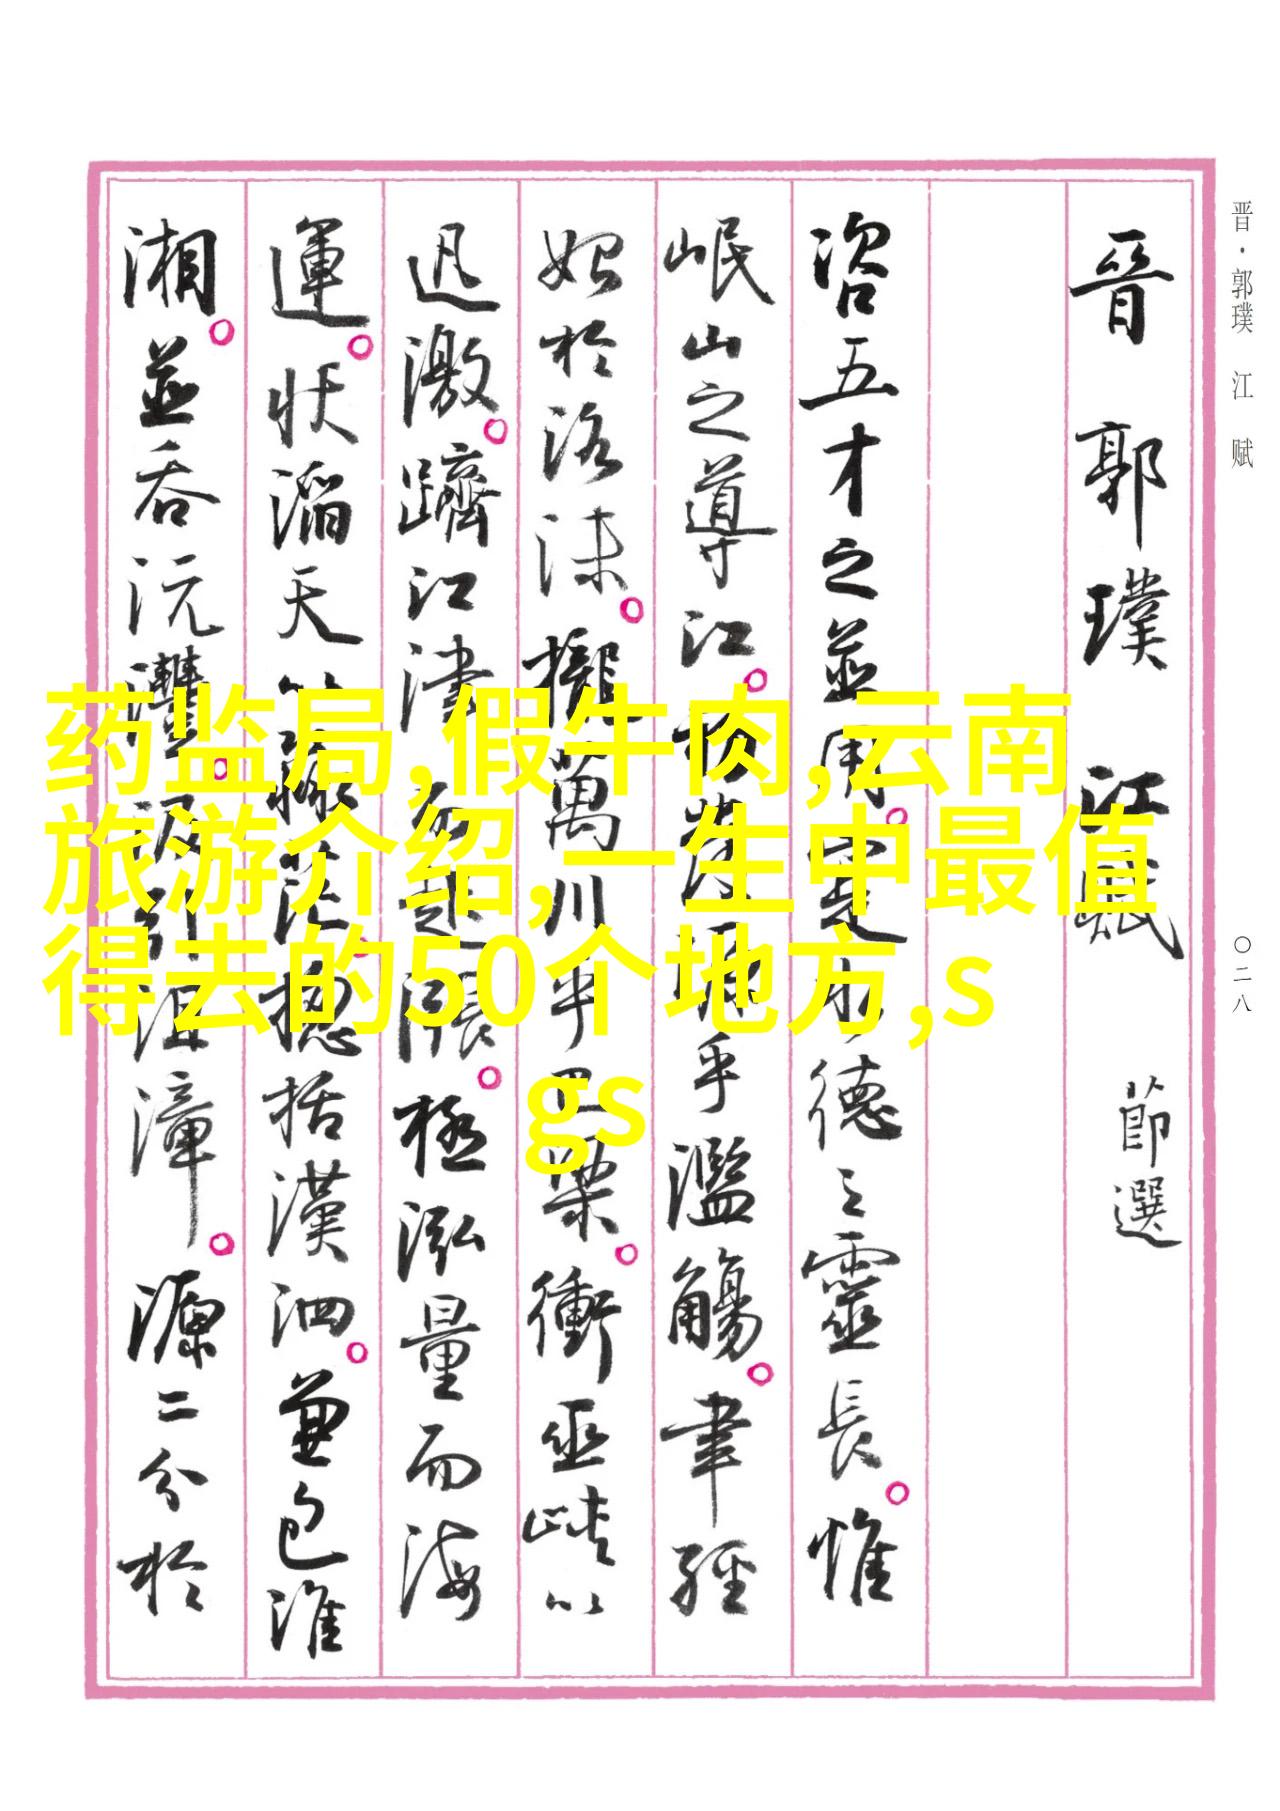 晋·郭璞 江 赋
〇二八
晉 郭 璞 江 賦 節選
咨五才之並用。寔水德之靈長。惟
岷山之導江。初發源乎濫觴。聿經
始於洛沬。攏萬川乎巴梁。衝巫峽以
迅激。躋江津而起漲。極泓量而海
運。狀滔天以淼茫。總括漢泗。兼包淮
湘。並吞沅澧。汲引沮漳。源二分於
药监局,假牛肉,云南
旅游介绍,一生中最值
得去的50个地方,s
gs